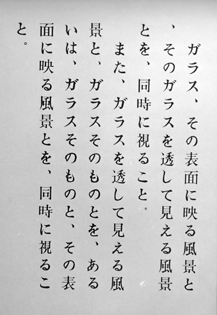 ガラス、その表面に映る風景と
、そのガラスを透して見える風景
とを、同時に視ること。
また、ガラスを透して見える風
景と、ガラスそのものとを、ある
いは、ガラスそのものと、その表
面に映る風景とを、同時に視るこ
と。